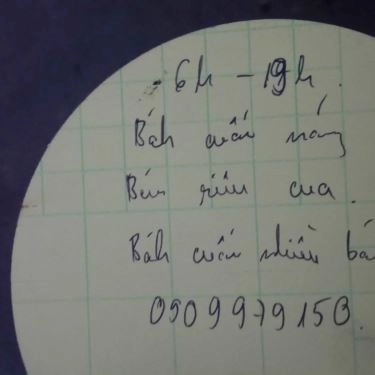 - 6h - 19h.
Bánh cuốn nóng
Bún riêu cua.
Bánh cuốn nhiều bá
0909979150.